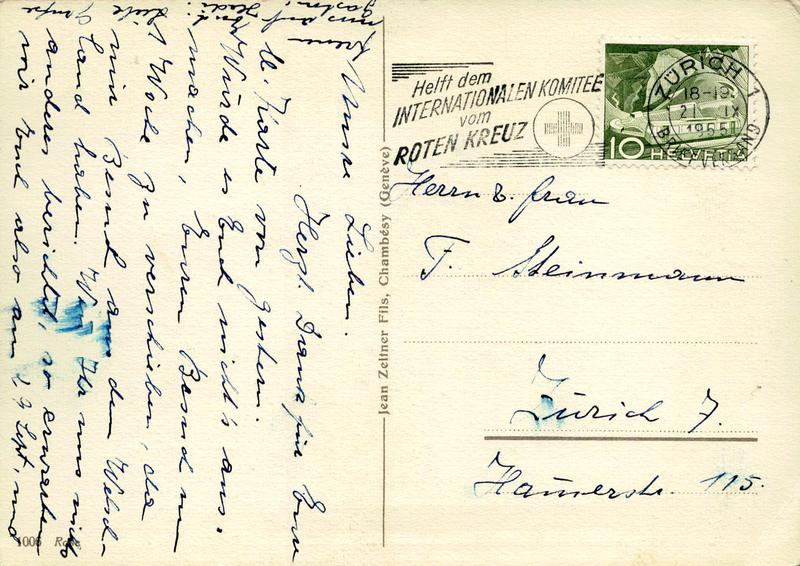 Unsre Lieben.
Herzl. Dank für Eure
lb. Karte von gestern.
Würde es Euch nichts aus-
machen, Euren Besuch um
1 Woche zu verschieben, da
wir Besuch aus dem Welsch-
land haben. Wenn Ihr uns nichts
anderes berichtet, so erwarten
wir Euch also am 29 Sept. und
freuen
uns auf
Euch
Liebe Grüsse
Jean Zeltner Fils, Chambésy (Genève)
1006
Helft dem
INTERNATIONALEN KOMITEE
vom
ROTEN KREUZ
ZÜRICH 1
18-19
21. IX
1955
10 HELVETIA
Herrn & Frau
F. Steinmann
Zürich 7.
115.